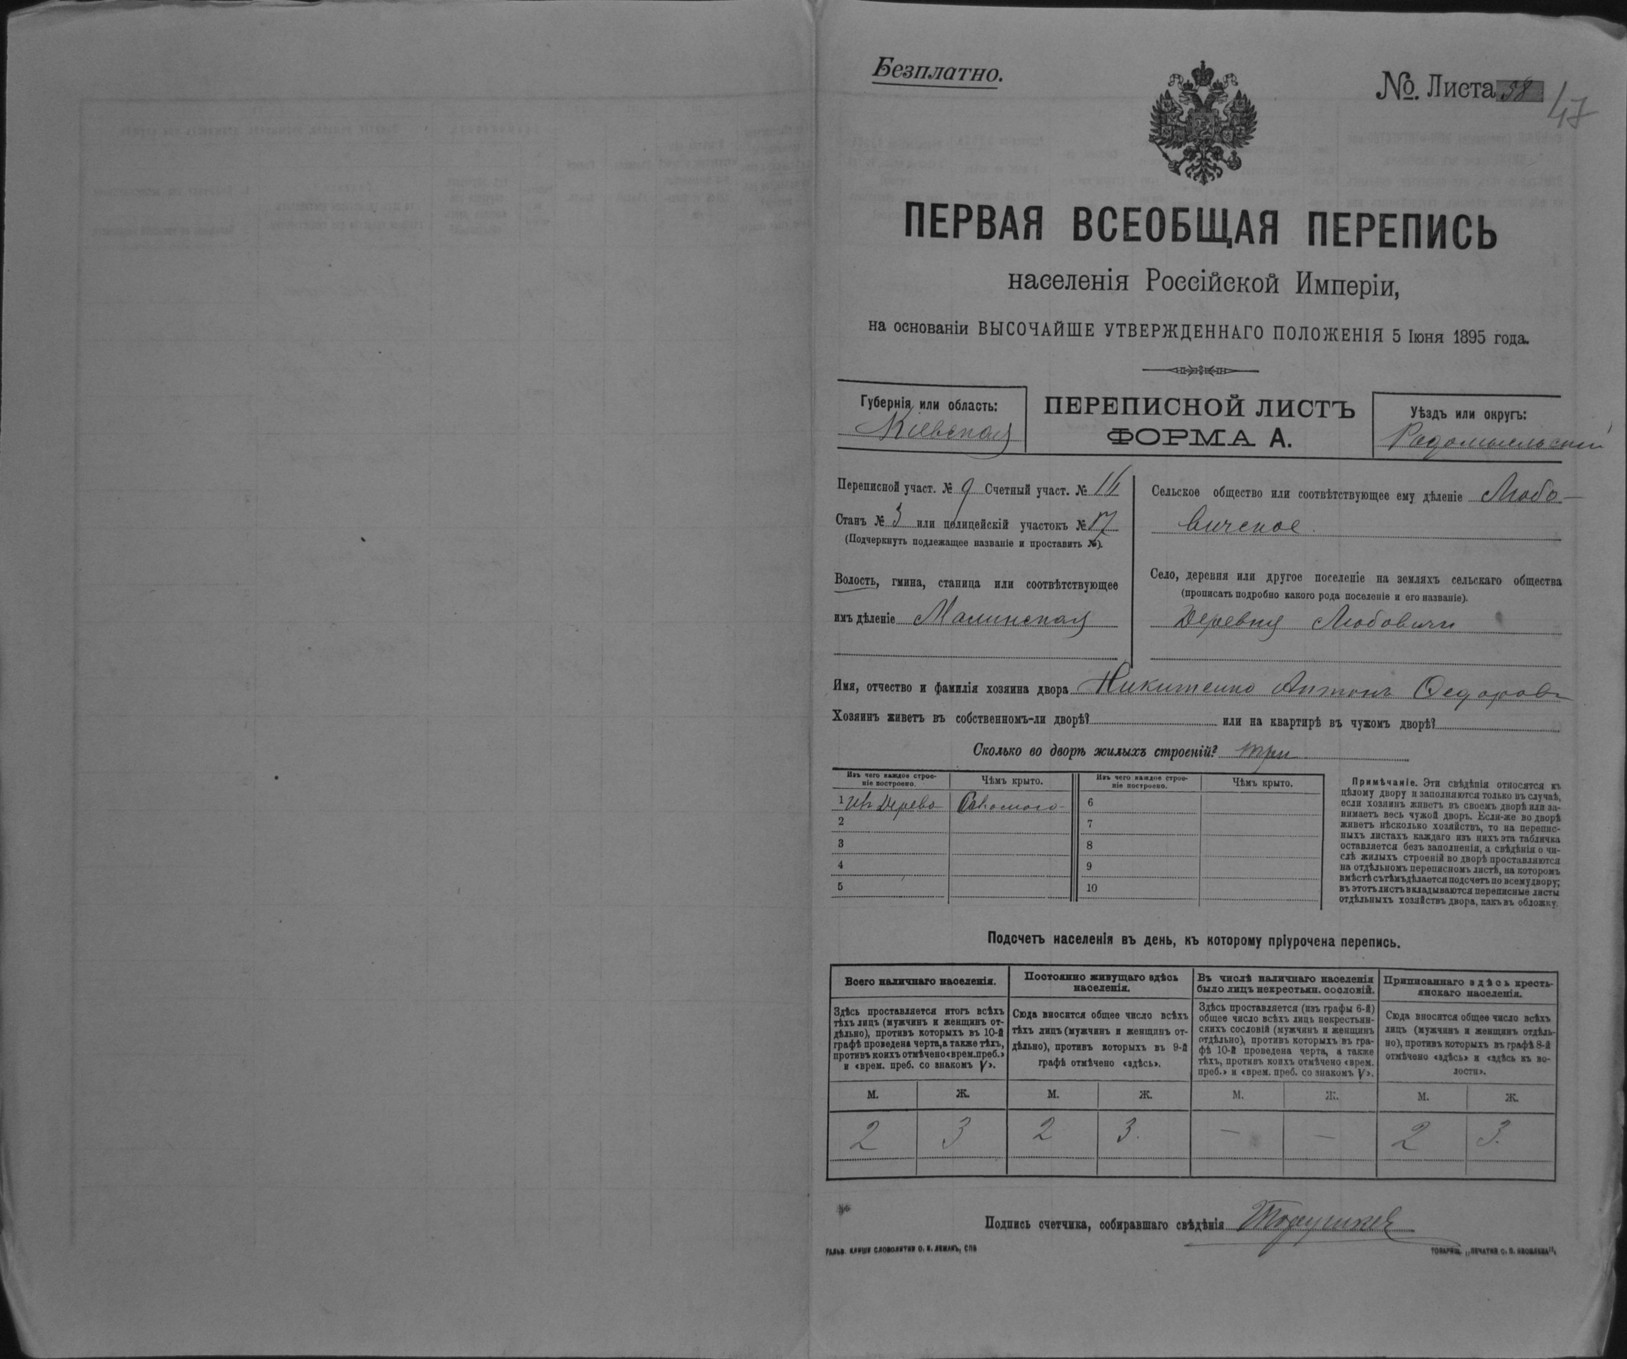 Безплатно.
№. Листа 38
47
ПЕРВАЯ ВСЕОБЩАЯ ПЕРЕПИСЬ
населенія Россійской Имперіи,
на основаніи ВЫСОЧАЙШЕ УТВЕРЖДЕННАГО ПОЛОЖЕНІЯ 5 Іюня 1895 года.
Губернія или область:
Кіевская
ПЕРЕПИСНОЙ ЛИСТЪ
ФОРМА А.
Уѣздъ или округъ:
Радомысльскій
Переписной участ. № 9 Счетный участ. № 16
Станъ № 3 или полицейскій участокъ № 17
(Подчеркнуть подлежащее названіе и проставить №).
Волость, гмина, станица или соотвѣтствующее
имъ дѣленіе Малинская
Сельское общество или соотвѣтствующее ему дѣленіе Любо-
вичское.
Село, деревня или другое поселеніе на земляхъ сельскаго общества
(прописать подробно какого рода поселеніе и его названіе).
Деревня Любовичи
Имя, отчество и фамилія хозяина двора Никитенко Антонъ Федоровъ
Хозяинъ живетъ въ собственномъ-ли дворѣ? или на квартирѣ въ чужомъ дворѣ?
Сколько во дворѣ жилыхъ строеній? три
Изъ чего каждое строе-
ніе построено.
Чѣмъ крыто.
Изъ чего каждое строе-
ніе построено.
Чѣмъ крыто.
1 изъ Дерева Соломого 6
2 7
3 8
4 9
5 10
Примѣчаніе. Эти свѣдѣнія относятся къ
цѣлому двору и заполняются только въ случаѣ,
если хозяинъ живетъ въ своемъ дворѣ или за-
нимаетъ весь чужой дворъ. Если-же во дворѣ
живетъ нѣсколько хозяйствъ, то на перепис-
ныхъ листахъ каждаго изъ нихъ эта табличка
оставляется безъ заполненія, а свѣдѣнія о чи-
слѣ жилыхъ строеній во дворѣ проставляются
на отдѣльномъ переписномъ листѣ, на которомъ
вмѣстѣ съ тѣмъ дѣлается подсчетъ по всему двору;
въ этотъ листъ вкладываются переписные листы
отдѣльныхъ хозяйствъ двора, какъ въ обложку.
Подсчетъ населенія въ день, къ которому пріурочена перепись.
Всего наличнаго населенія.
Здѣсь проставляется итогъ всѣхъ
тѣхъ лицъ (мужчинъ и женщинъ от-
дѣльно), противъ которыхъ въ 10-й
графѣ проведена черта, а также тѣхъ,
противъ коихъ отмѣчено «врем. преб.»
и «врем. преб. со знакомъ V».
Постоянно живущаго здѣсь
населенія.
Сюда вносится общее число всѣхъ
тѣхъ лицъ (мужчинъ и женщинъ от-
дѣльно), противъ которыхъ въ 9-й
графѣ отмѣчено «здѣсь».
Въ числѣ наличнаго населенія
было лицъ некрестьян. сословій.
Здѣсь проставляется (изъ графы 6-й)
общее число всѣхъ лицъ некрестьян-
скихъ сословій (мужчинъ и женщинъ
отдѣльно), противъ которыхъ въ гра-
фѣ 10-й проведена черта, а также
тѣхъ, противъ коихъ отмѣчено «врем.
преб.» и «врем. преб. со знакомъ V».
Приписаннаго здѣсь кресть-
янскаго населенія.
Сюда вносится общее число всѣхъ
лицъ (мужчинъ и женщинъ отдѣль-
но), противъ которыхъ въ графѣ 8-й
отмѣчено «здѣсь» и «здѣсь въ во-
лости».
М. Ж. М. Ж. М. Ж. М. Ж.
2 3 2 3. — — 2 3.
Подпись счетчика, собиравшаго свѣдѣнія
ГАЛЬВ. КЛИШЕ СЛОВОЛИТНИ О. И. ЛЕМАНЪ, СПБ
ТОВАРИЩ. „ПЕЧАТНЯ С. П. ЯКОВЛЕВА“.